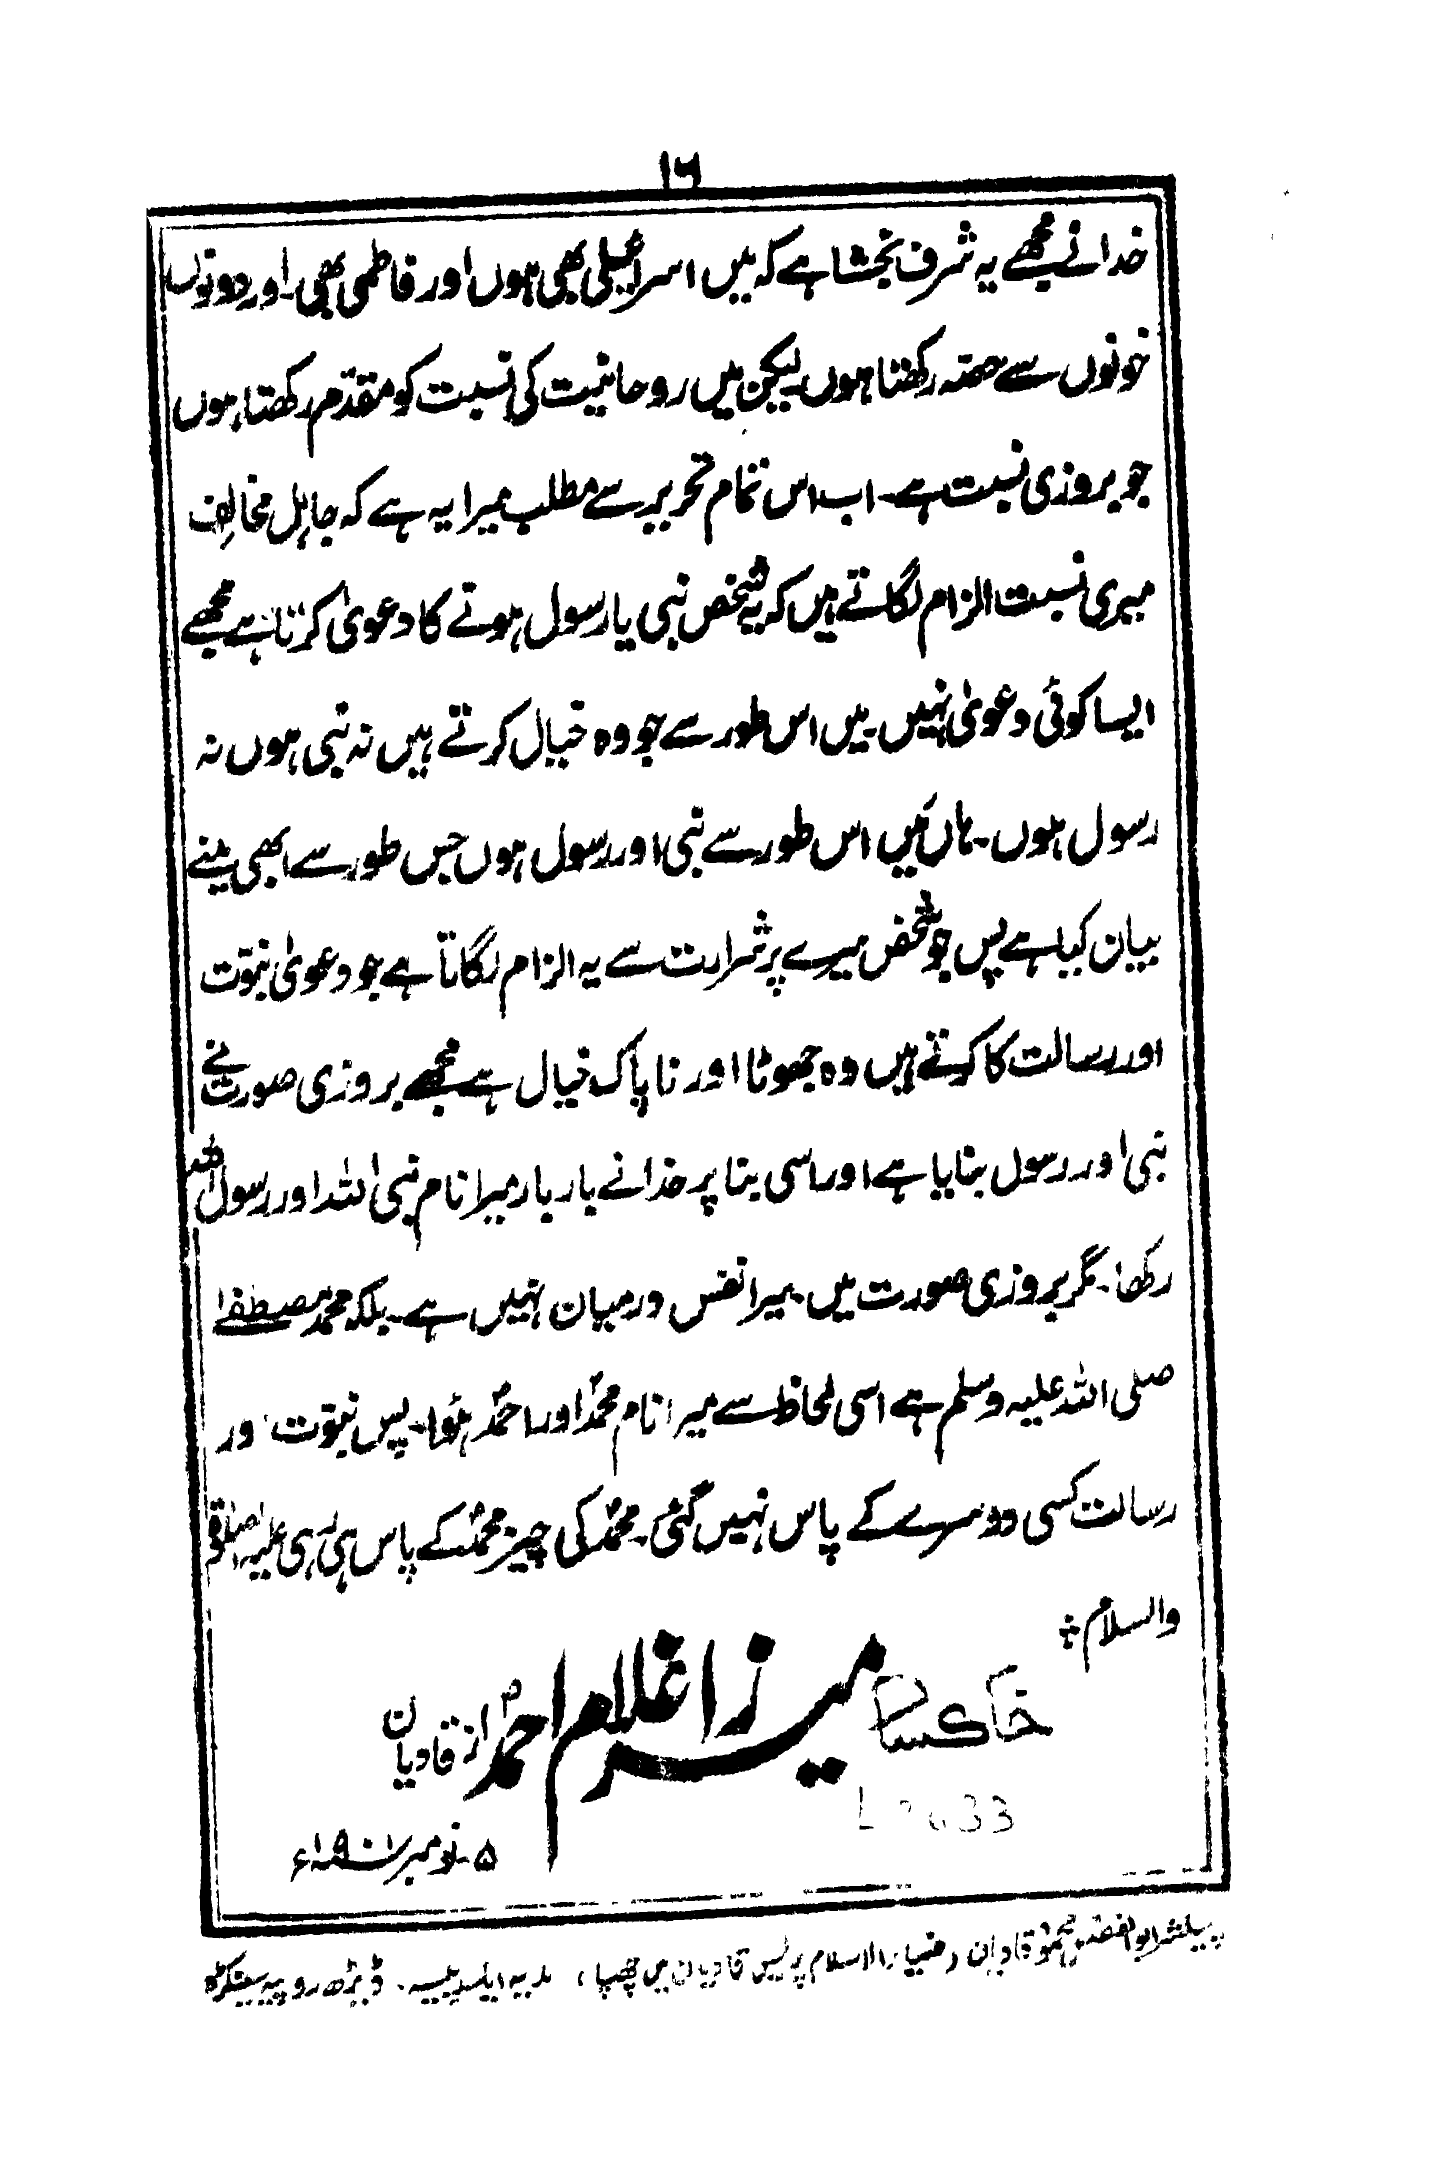 ۱۶
خدا نے مجھے یہ شرف بخشا ہے کہ میں اسرائیلی بھی ہوں اور فاطمی بھی۔ اور دونوں
خونوں سے حصّہ رکھتا ہوں لیکن میں روحانیت کی نسبت کو مقدّم رکھتا ہوں
جو بروزی نسبت ہے۔ اب اس تمام تحریر سے مطلب میرا یہ ہے کہ جاہل مخالف
میری نسبت الزام لگاتے ہیں کہ یہ شخص نبی یا رسول ہونے کا دعویٰ کرتا ہے مجھے
ایسا کوئی دعویٰ نہیں۔ میں اس طور سے جو وہ خیال کرتے ہیں نہ نبی ہوں نہ
رسول ہوں۔ ہاں مَیں اس طور سے نبی اور رسول ہوں جس طور سے ابھی مینے
بیان کیا ہے پس جو شخص میرے پر شرارت سے یہ الزام لگاتا ہے جو دعویٰ نبوّت
اور رسالت کا کرتے ہیں وہ جھوٹا اور ناپاک خیال ہے مجھے بروزی صورت نے
نبی اور رسول بنایا ہے اور اسی بنا پر خدا نے بار بار میرا نام نبی اللہ اور رسول اللہ
رکھا۔ مگر بروزی صورت میں۔ میرا نفس درمیان نہیں ہے۔ بلکہ محمد مصطفےٰ
صلی اللہ علیہ وسلم ہے اسی لحاظ سے میرا نام محمدؐ اور احمدؐ ہؤا۔ پس نبوّت اور
رسالت کسی دوسرے کے پاس نہیں گئی۔ محمدؐ کی چیز محمدؐ کے پاس ہی رہی علیہ الصلوٰۃ
والسلام ؞
خاکسار میرزا غلام احمدؐ از قادیان
۵۔ نومبر ۱۹۰۱ء
پبلشر ابوالفضل محمود قادیان ضیاء الاسلام پریس قادیان میں چھپا، ہدیہ ایک پیسہ۔ ڈیڑھ روپیہ سینکڑہ